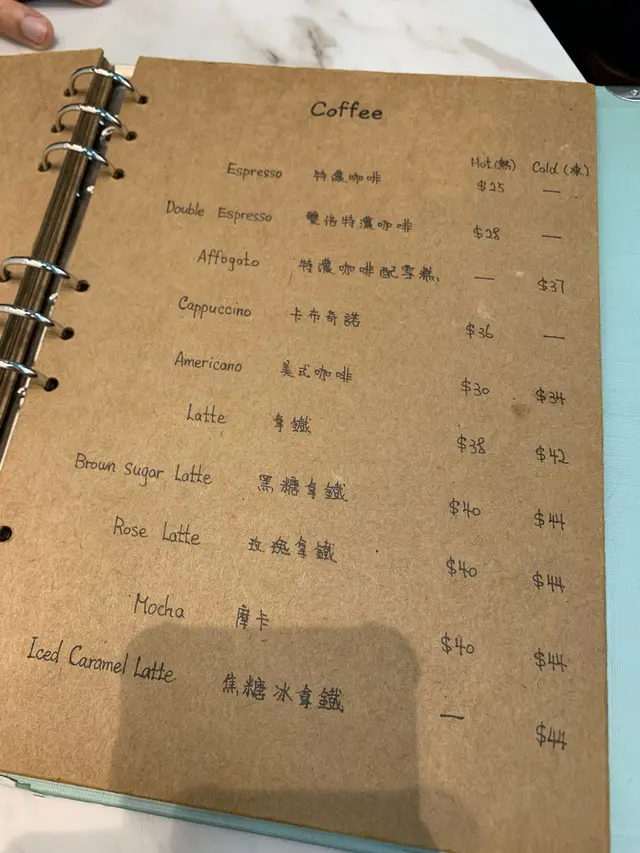 Coffee
Hot(熱) Cold (凍)
Espresso 特濃咖啡 $25 —
Double Espresso 雙倍特濃咖啡 $28 —
Affogato 特濃咖啡配雪糕 — $37
Cappuccino 卡布奇諾 $36 —
Americano 美式咖啡 $30 $34
Latte 拿鐵 $38 $42
Brown sugar Latte 黑糖拿鐵 $40 $44
Rose Latte 玫瑰拿鐵 $40 $44
Mocha 摩卡 $40 $44
Iced Caramel Latte 焦糖冰拿鐵 — $44